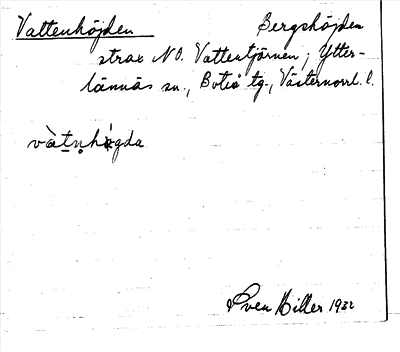 Vattenhöjden Bergshöjden
strax NO. Vattentjärnen, Ytter-
lännäs sn., Boteå tg., Västernorrl. l.
Sven Hiller 1932